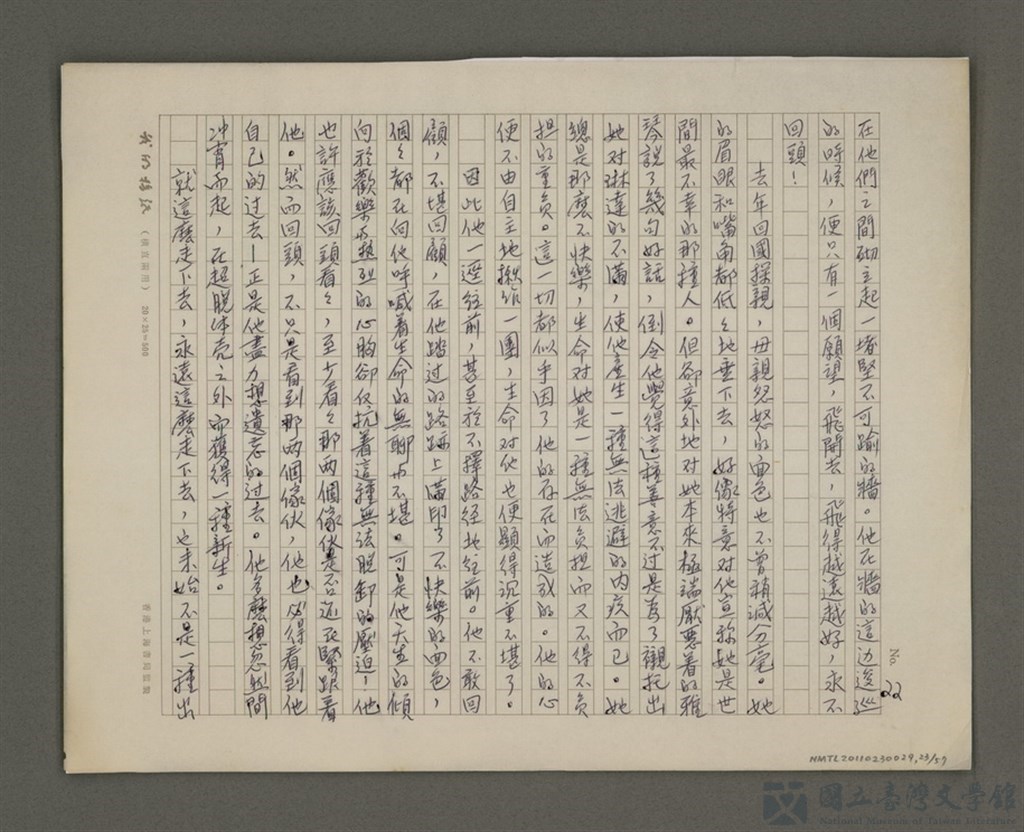 No. 22
在他們之間砌主起一堵堅不可踰的牆。他在牆的這边逡巡
的時候，便只有一個願望，飛開去，飛得越遠越好，永不
回頭！
去年回國探親，母親忿怒的面色也不曾稍減分毫。她
的眉眼和嘴角都低低地垂下去，好像特意对他宣称她是世
間最不幸的那種人。但卻意外地对她本來極端厭惡着的雅
琴說了幾句好話，倒令他覺得這種善意不过是為了襯托出
她对琳達的不滿，使他產生一種無法逃避的内疚而已。她
總是那麼不快樂，生命对她是一種無法负担而又不得不负
担的重负。這一切都似乎因了他的存在而造成的。他的心
便不由自主地揪作一團，生命对他也便顯得沉重不堪了。
因此他一逕往前，甚至於不擇路徑地往前。他不敢回
顧，不堪回顧，在他踏过的路跡上滿印了不快樂的面色，
個個都在向他呼喊着生命的無聊与不堪。可是他天生的傾
向於歡樂与熱烈的心胸卻仅抗着這種無法脫卸的壓迫！他
也許應該回頭看看，至少看看那兩個傢伙是否还在緊跟着
他。然而回頭，不只是看到那兩個傢伙，他也必得看到他
自己的过去—正是他盡力想遺忘的过去。他多麼想忽然間
冲霄而起，在超脫体壳之外而獲得一種新生。
就這麼走下去，永遠這麼走下去，也未始不是一種出
（橫直兩用） 20×25=500
香港上海書局監製
NMTL20110230029,23/57
國立臺灣文學館
National Museum of Taiwan Literature